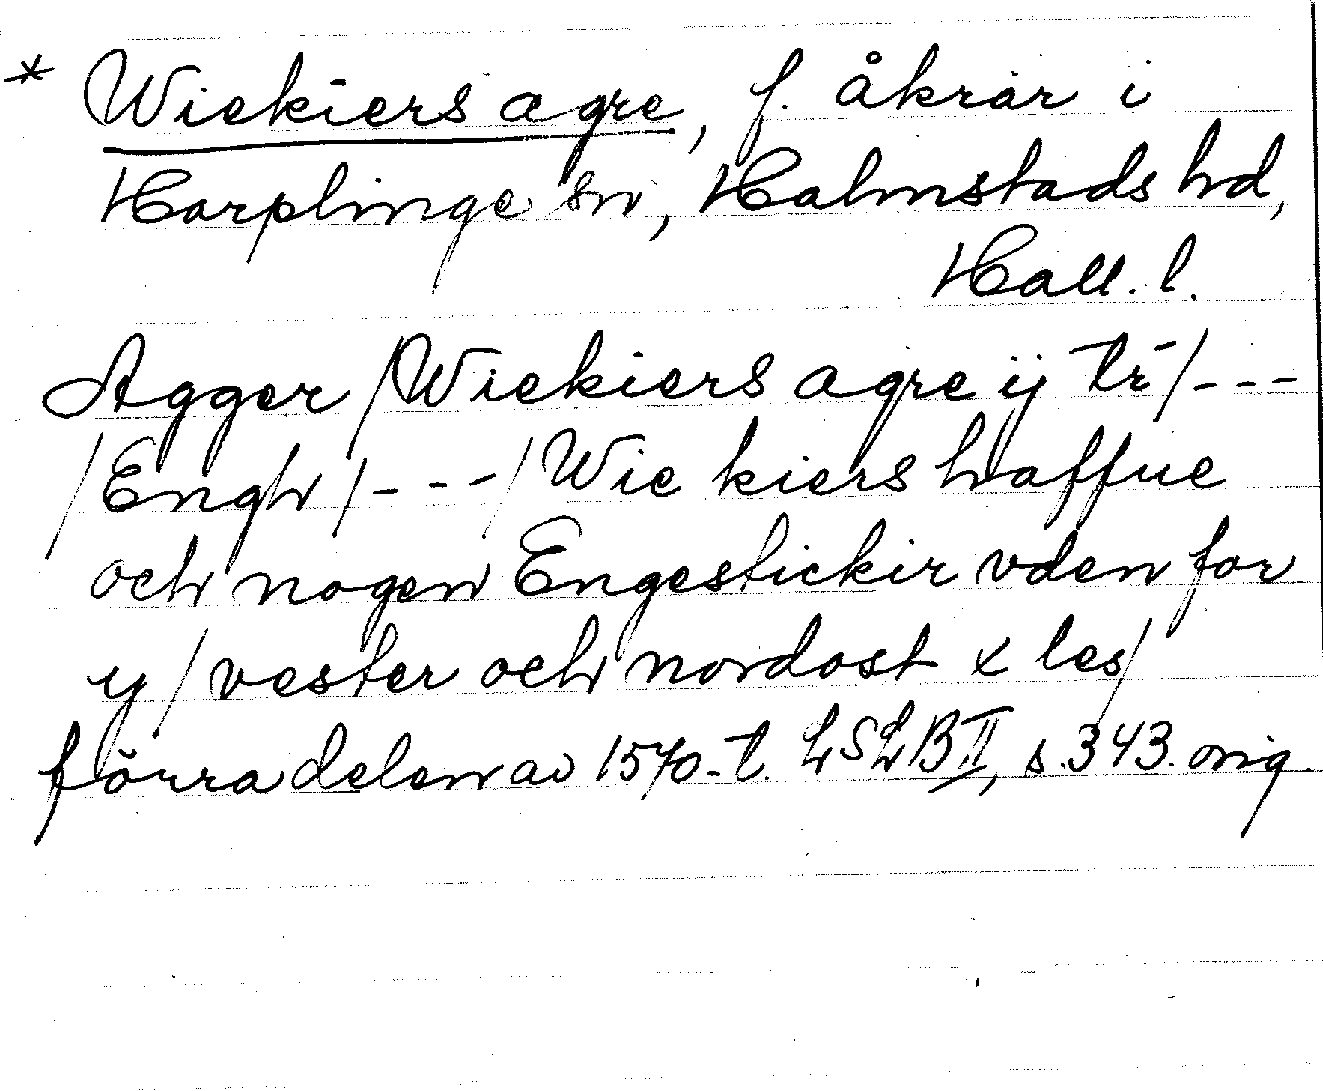 * Wiekiers agre, f. åkrar i
Harplinge sn, Halmstads hd,
Hall. l.
Agger / Wiekiers agre ij tr̄ / - - -
/ Engh / - - - / Wie kiers haffue
och nogen Engestickir vden for
y / vester och nordost x les /
förra delen av 1570-t. LSLB II, s. 343. orig.